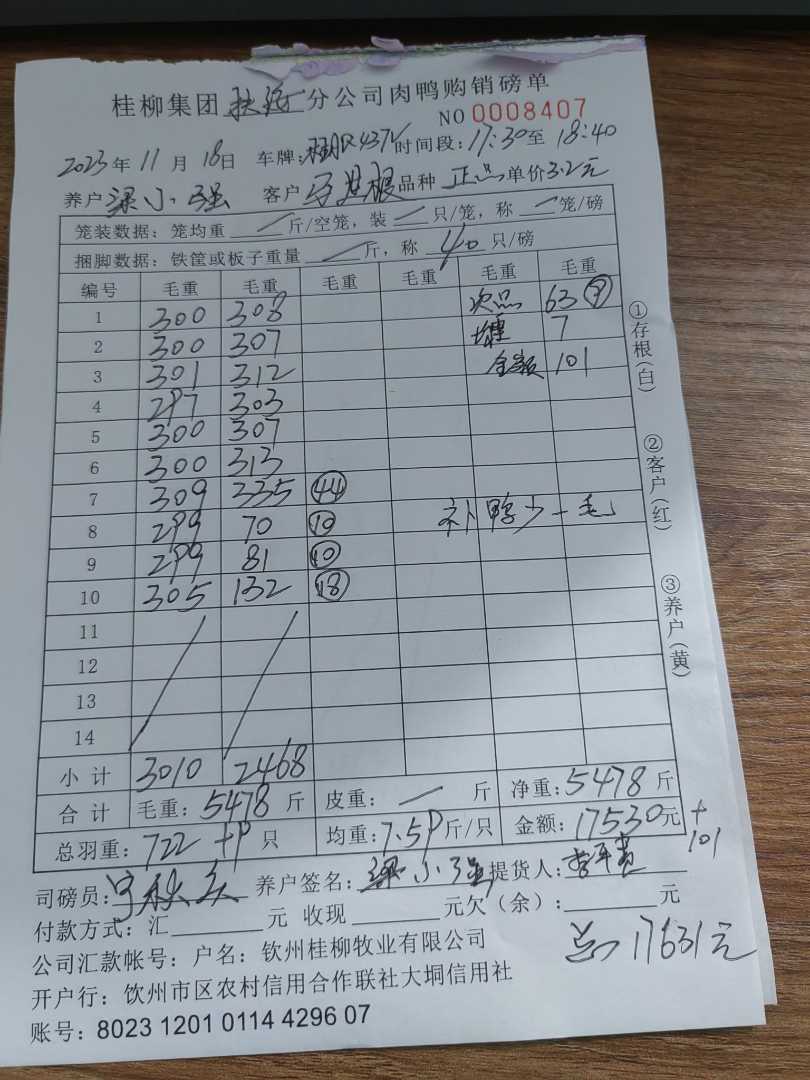 桂柳集团扶绥分公司肉鸭购销磅单
NO 0008407
2023年11月18日 车牌: 时间段:17:30至18:40
养户 梁小强 客户 品种 正品 单价3.2元
笼装数据: 笼均重 / 斤/空笼, 装 / 只/笼, 称 / 笼/磅
捆脚数据: 铁筐或板子重量 / 斤, 称 40 只/磅
编号 毛重 毛重 毛重 毛重 毛重 毛重
1 300 308 次品 63 9
2 300 307 7
3 301 312 金额 101
4 297 303
5 300 307
6 300 313
7 309 335 44
8 299 70 10 补鸭少一毛
9 299 81 10
10 305 132 18
11
12
13
14
小计 3010 2468
合计 毛重: 5478 斤 皮重: / 斤 净重: 5478 斤
总羽重: 722+9 只 均重: 7.59 斤/只 金额: 17530元 + 101
司磅员: 养户签名: 梁小强 提货人:
付款方式: 汇 元 收现 元欠(余): 元
总 17631元
公司汇款帐号: 户名: 钦州桂柳牧业有限公司
开户行: 钦州市区农村信用合作联社大垌信用社
账号: 8023 1201 0114 4296 07
①存根(白)
②客户(红)
③养户(黄)